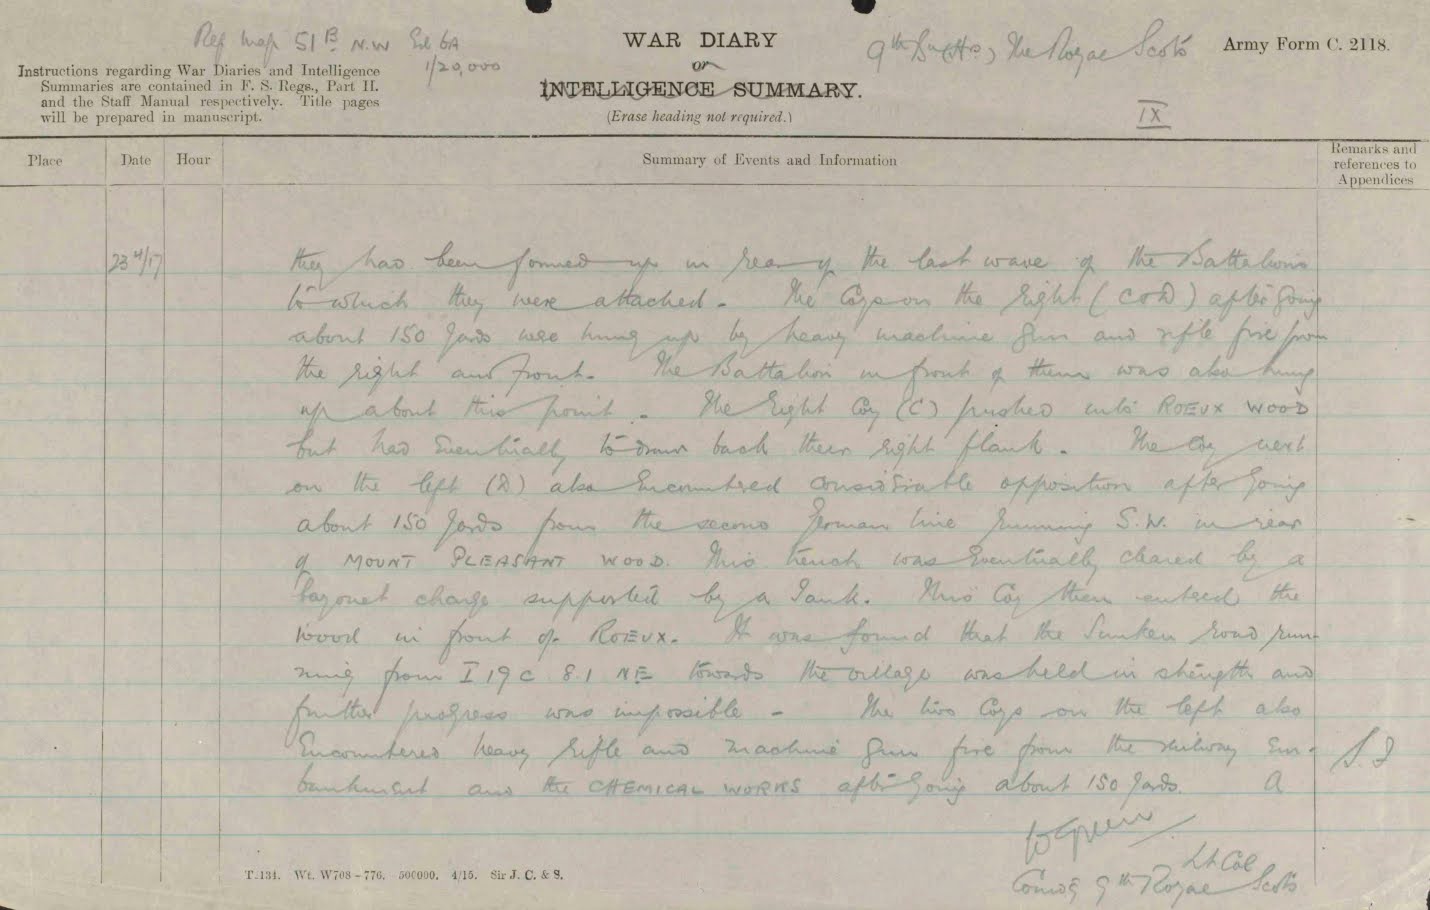 Ref Map 51B N.W Ed 6A
1/20,000
WAR DIARY
or
INTELLIGENCE SUMMARY.
(Erase heading not required.)
9th Bn (Hrs) The Royal Scots
Army Form C. 2118.
IX
Instructions regarding War Diaries and Intelligence
Summaries are contained in F. S. Regs., Part II.
and the Staff Manual respectively. Title pages
will be prepared in manuscript.
Place Date Hour Summary of Events and Information Remarks and references to Appendices
23/4/17 they had been formed up in rear of the last wave of the Battalions
to which they were attached. The Coys on the Right (C & D) after going
about 150 yards were hung up by heavy machine gun and rifle fire from
the right and front. The Battalion in front of them was also hung
up about this point. The Right Coy (C) pushed into ROEUX WOOD
but had eventually to draw back their right flank. The Coy next
on the left (D) also encountered considerable opposition after going
about 150 yards from the second German line running S.W. in rear
of MOUNT PLEASANT WOOD. This trench was eventually cleared by a
bayonet charge supported by a Tank. This Coy then entered the
wood in front of ROEUX. It was found that the Sunken road run-
ning from I 19 c 8.1 NE towards the village was held in strength and
further progress was impossible - The two Coys on the left also
encountered heavy rifle and machine gun fire from the railway em-
bankment and the CHEMICAL WORKS after going about 150 yards. A
W Green
Lt Col
Comdg 9th Royal Scots
T.134. Wt. W708-776. 500000. 4/15. Sir J. C. & S.